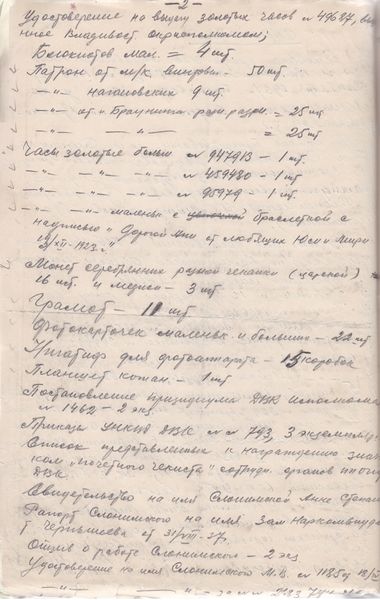 -2-
Удостоверение на выдачу золотых часов № 49687, выдан
ное Владивост. Окрисполкомом;
Блокнотов мал. = 4 шт.
Патрон от м/к. винтовки - 50 шт
-"- нагановских 9 шт.
-"- от "Браунинга разн. разм. = 25 шт
-"- -"- = 25 шт
Часы золотые больш № 947913 - 1 шт.
-"- -"- -"- № 459480 - 1 шт.
-"- -"- -"- № 95979 - 1 шт.
-"- -"- маленьк с браслеткой с
надписью "Дорогой от любящих Юси и
/XII-1923."
Монет серебрянник разной чеканки (царской)
16 шт. и медной - 3 шт
Грамот - 11 шт
Фотокарточек маленьк. и больших - 22 шт
для фотоаппарата - 15 коробок
Планшет кожан. - 1 шт
Постановление президиума ДВК исполкома
№ 1462 - 2 экз.
Приказы УНКВД ДВК № № 793, 3 экземпляра
Список представленных к награждению знач
ком "почетного чекиста" сотрудн. органов
ДВК.
Свидетельство на имя Слонимской Анне
Рапорт Слонимского на имя Зам Наркомвнудел
т Чернышева от 31/VII-37.
Отзыв о работе Слонимского - 2 экз
Удостоверение на имя Слонимского М.В. № 1185